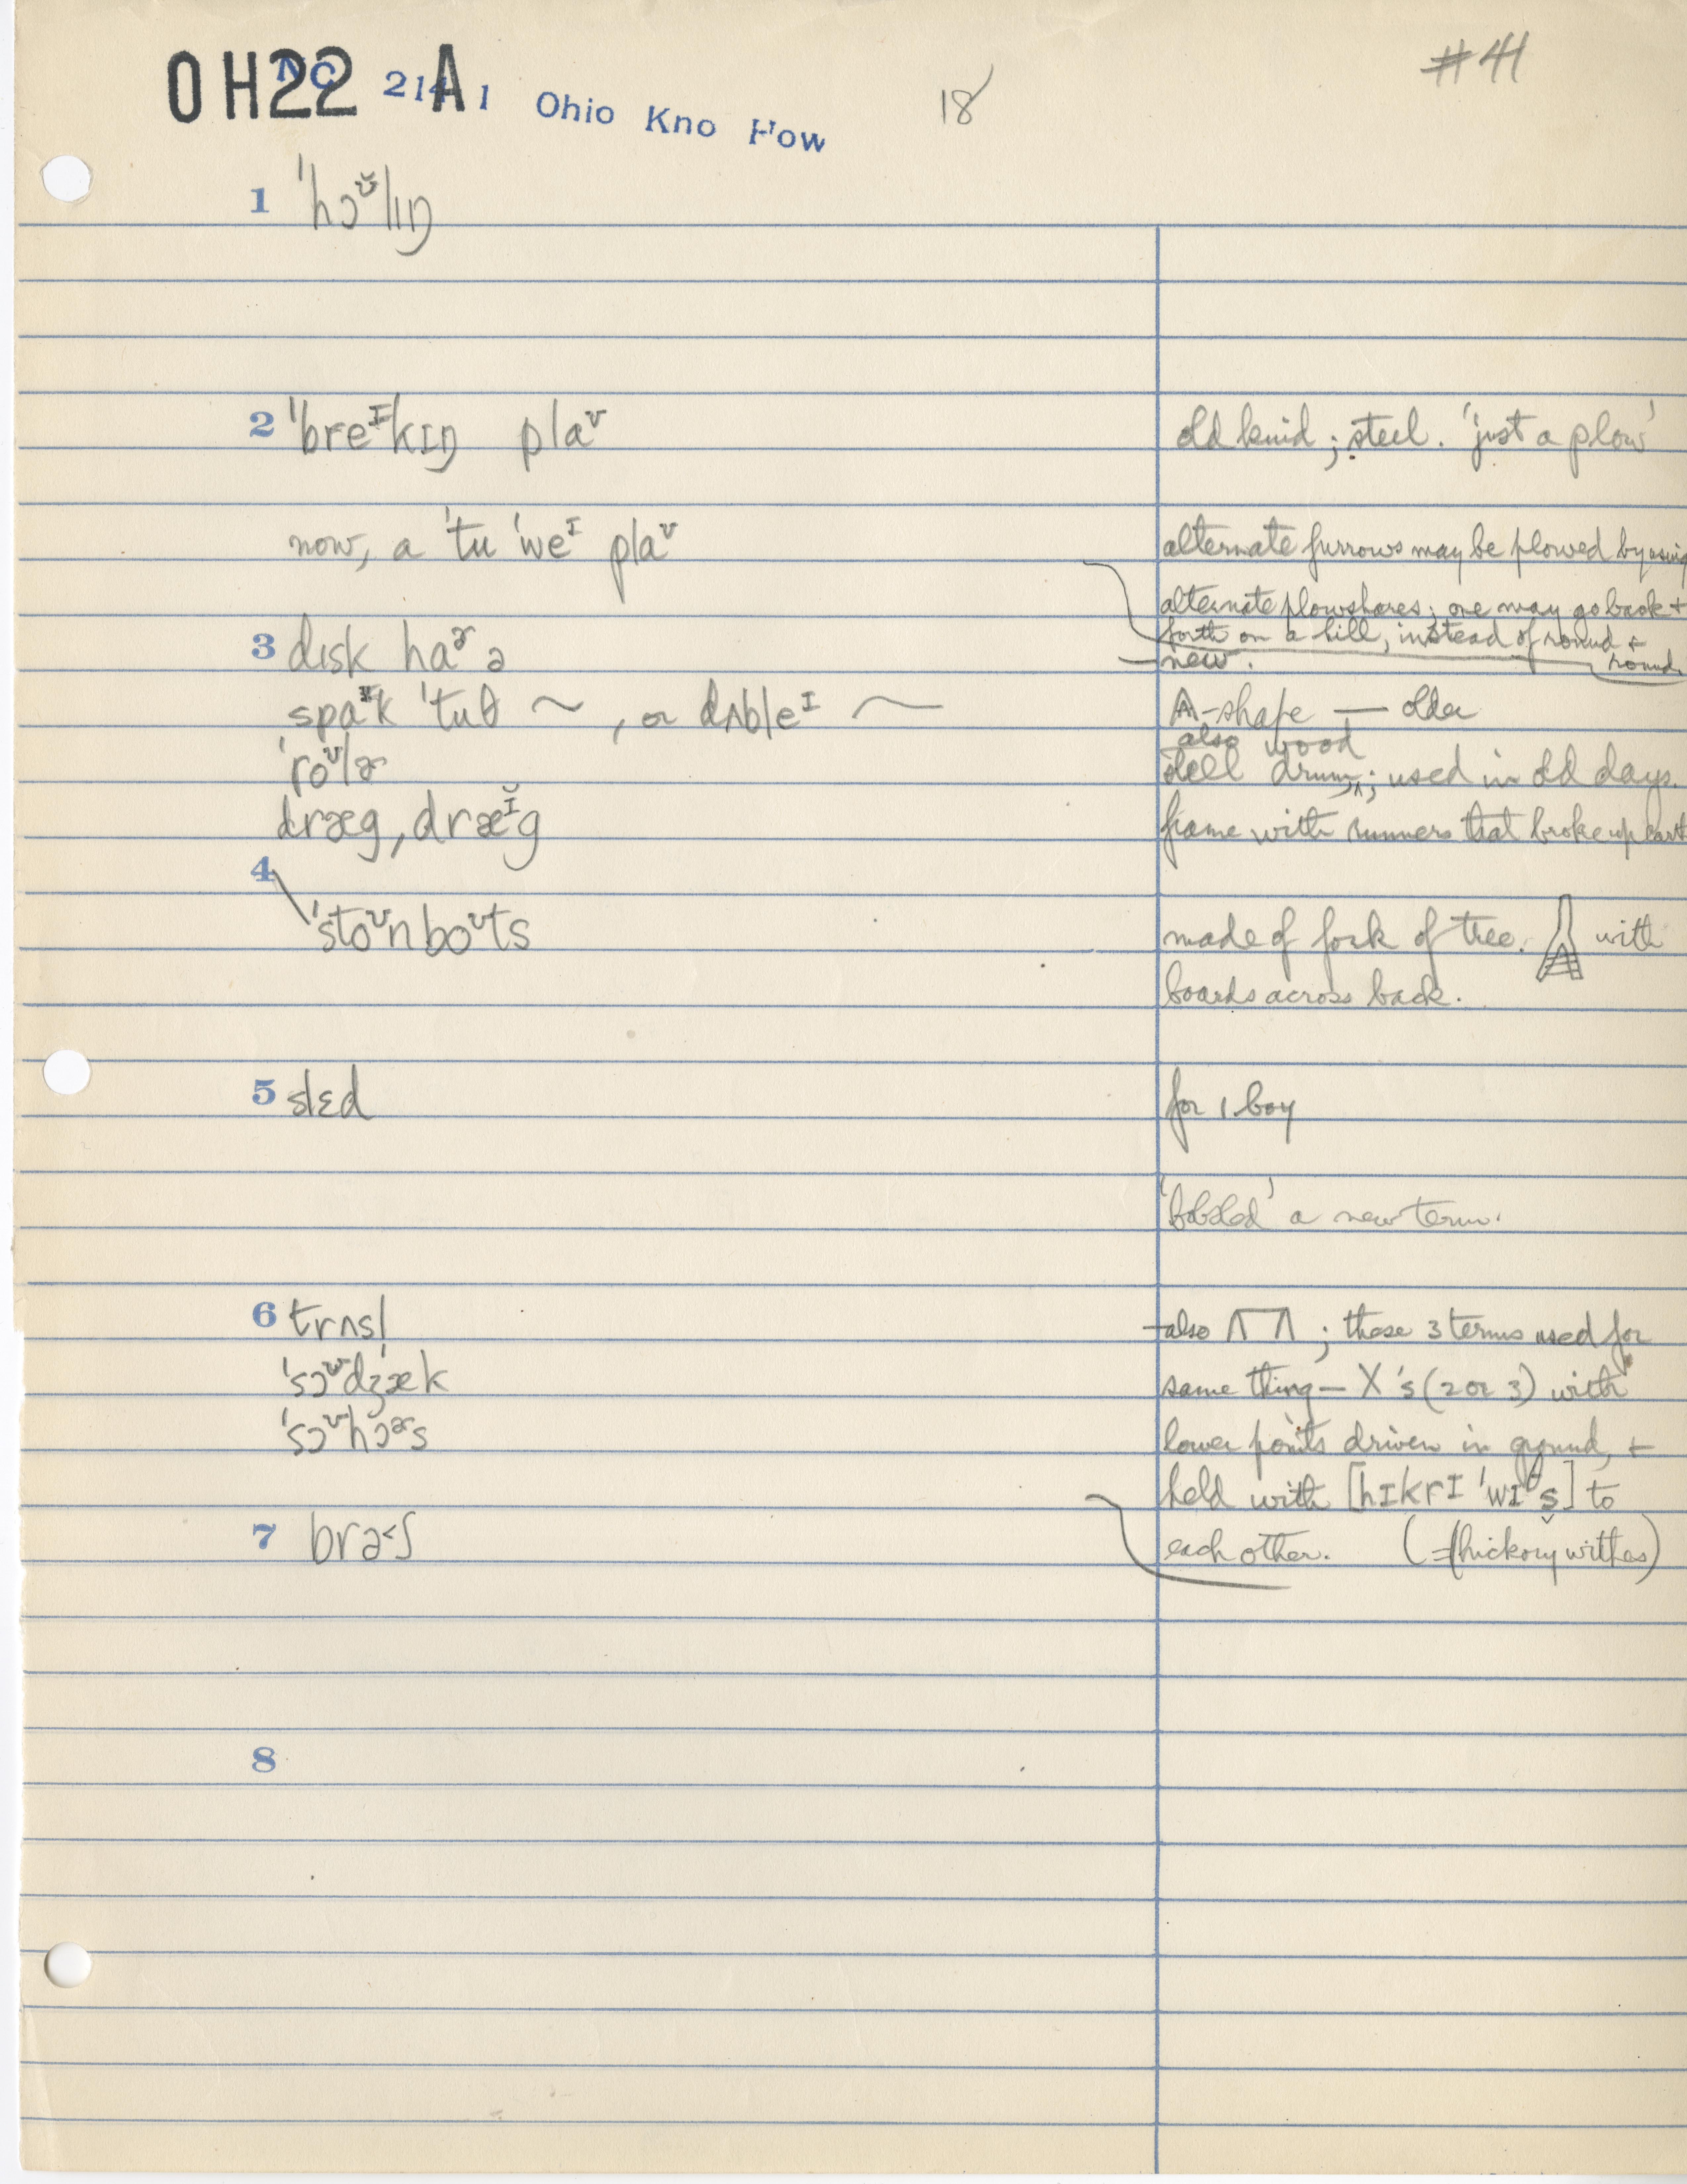 OH22 A
NC 214 1 Ohio Kno How
18
#41
1 ˈhɔᶷ̆lɪŋ
2 ˈbreᴵkɪŋ plaᶷ old kind; steel. 'just a plow'
now, a ˈtu ˈweᴵ plaᶷ alternate furrows may be plowed by using
alternate plowshares; one may go back +
forth on a hill, instead of round +
round
3 dɪsk haᵊ˞ ə new.
ˈtuθ ~, or dʌbleᴵ ~ A-shape — older
also wood
ˈroᶷlɚ drum; used in old days.
dræg, dræᴵ̆g frame with runners that broke up earth
4
ˈstoᶷnboᶷts made of fork of tree. with
boards across back.
5 slɛd for 1 boy
'bobsled' a new term.
6 trʌsl also ; these 3 terms used for
ˈsɔᶷdʒæk same thing — X's (2 or 3) with
ˈsɔᶷhɔɚs lower points driven in ground, +
held with [hɪkrɪ ˈwɪᶿs̬] to
7 brə˂ʃ each other. (= hickory withes)
8